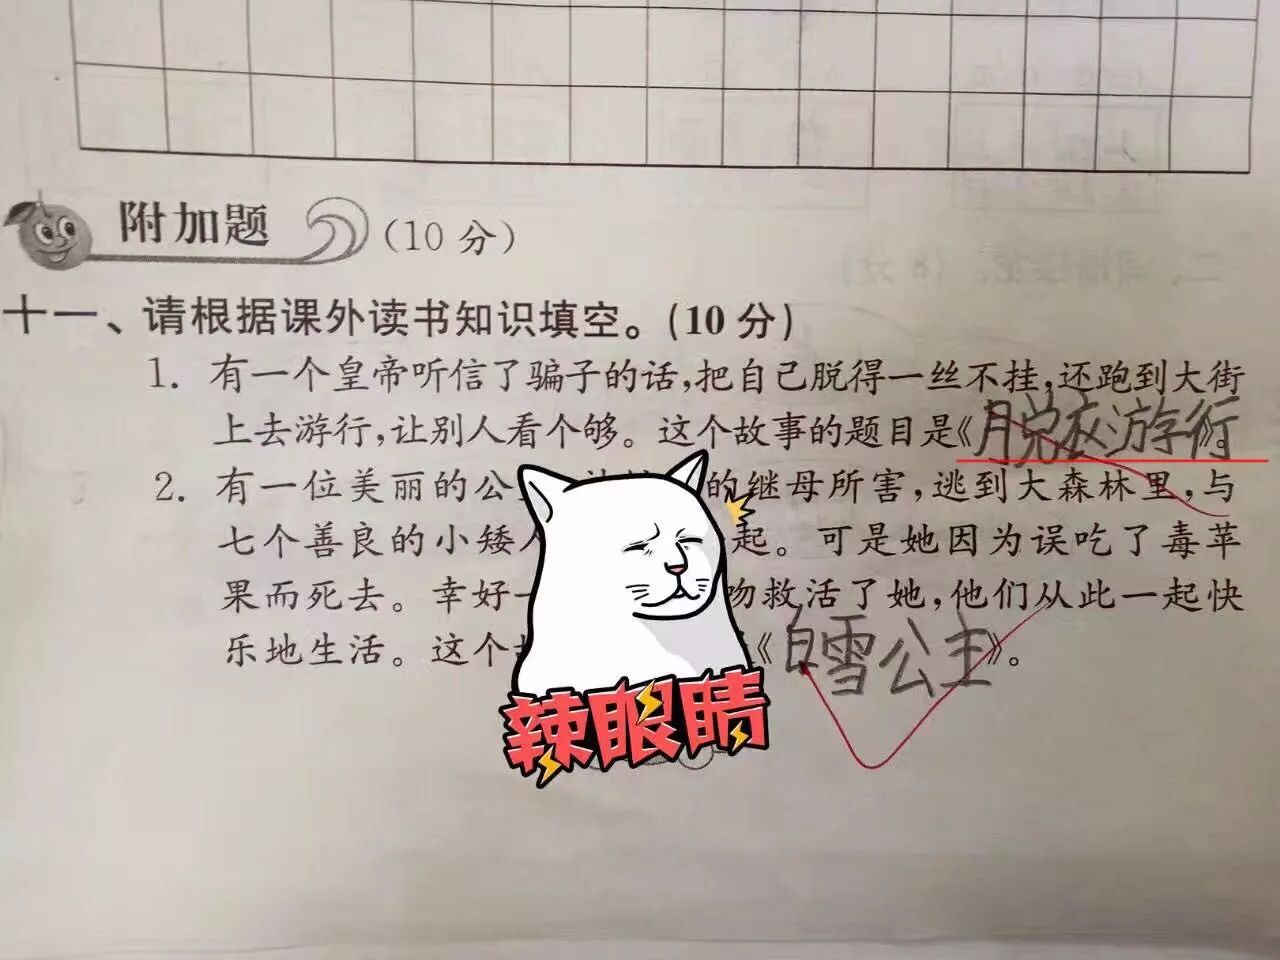 附加题 (10 分)
十一、请根据课外读书知识填空。(10 分)
1. 有一个皇帝听信了骗子的话,把自己脱得一丝不挂,还跑到大街
上去游行,让别人看个够。这个故事的题目是《脱衣游行》。
2. 有一位美丽的公 的继母所害,逃到大森林里,与
七个善良的小矮人 起。可是她因为误吃了毒苹
果而死去。幸好一 吻救活了她,他们从此一起快
乐地生活。这个 《白雪公主》。
辣眼睛